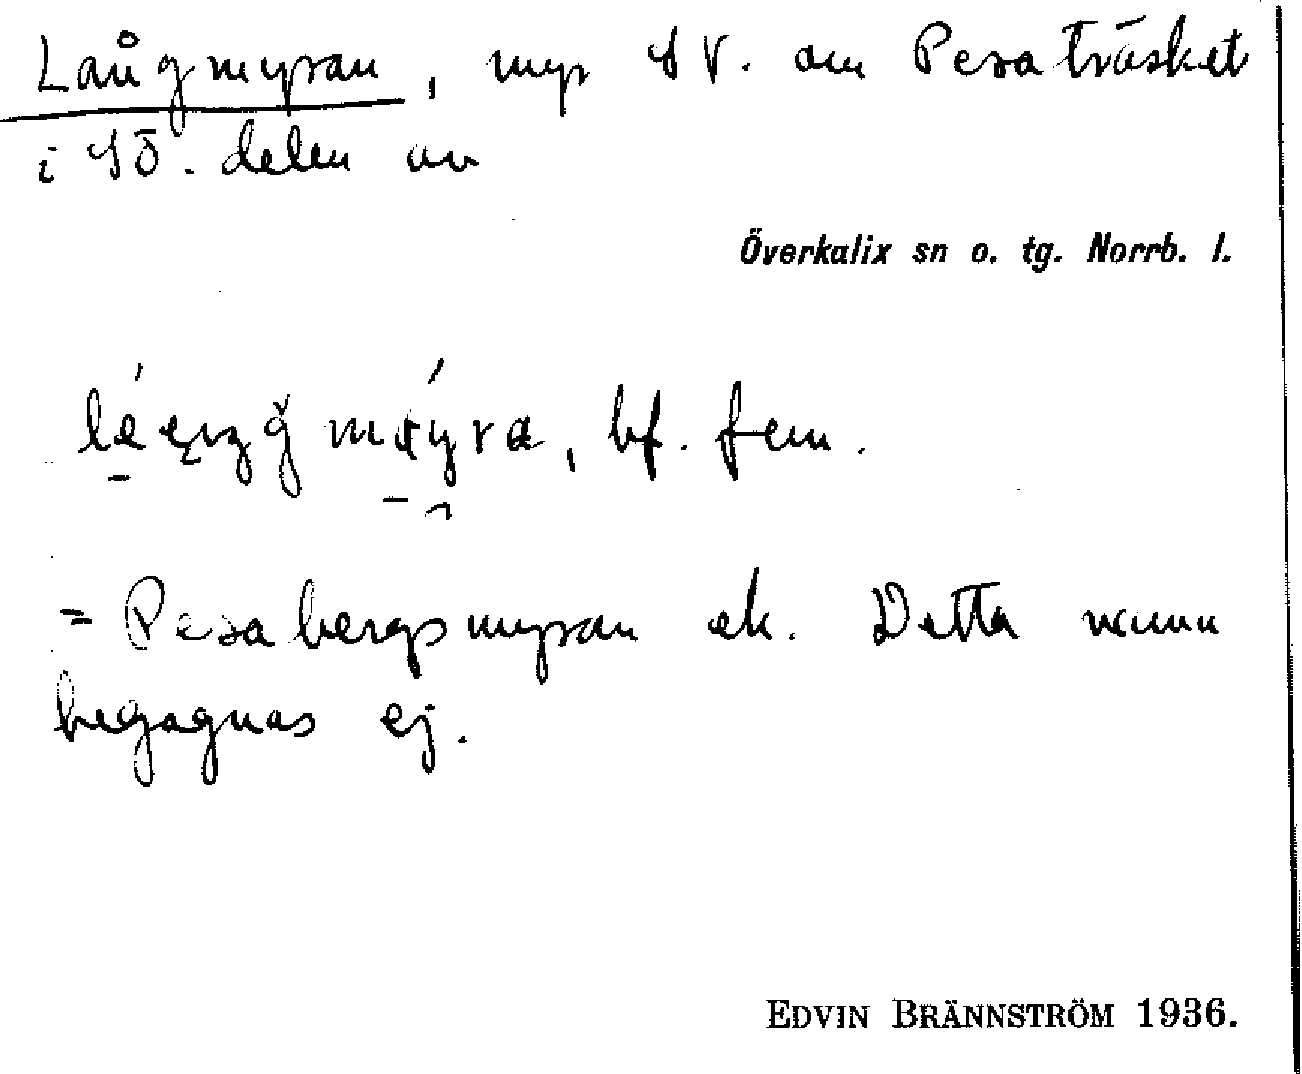 Långmyran, myr SV. om Pesaträsket
i SÖ. delen av
Överkalix sn o. tg. Norrb. l.
bf. fem.
= Pesabergsmyran ek. Detta namn
begagnas ej.
EDVIN BRÄNNSTRÖM 1936.